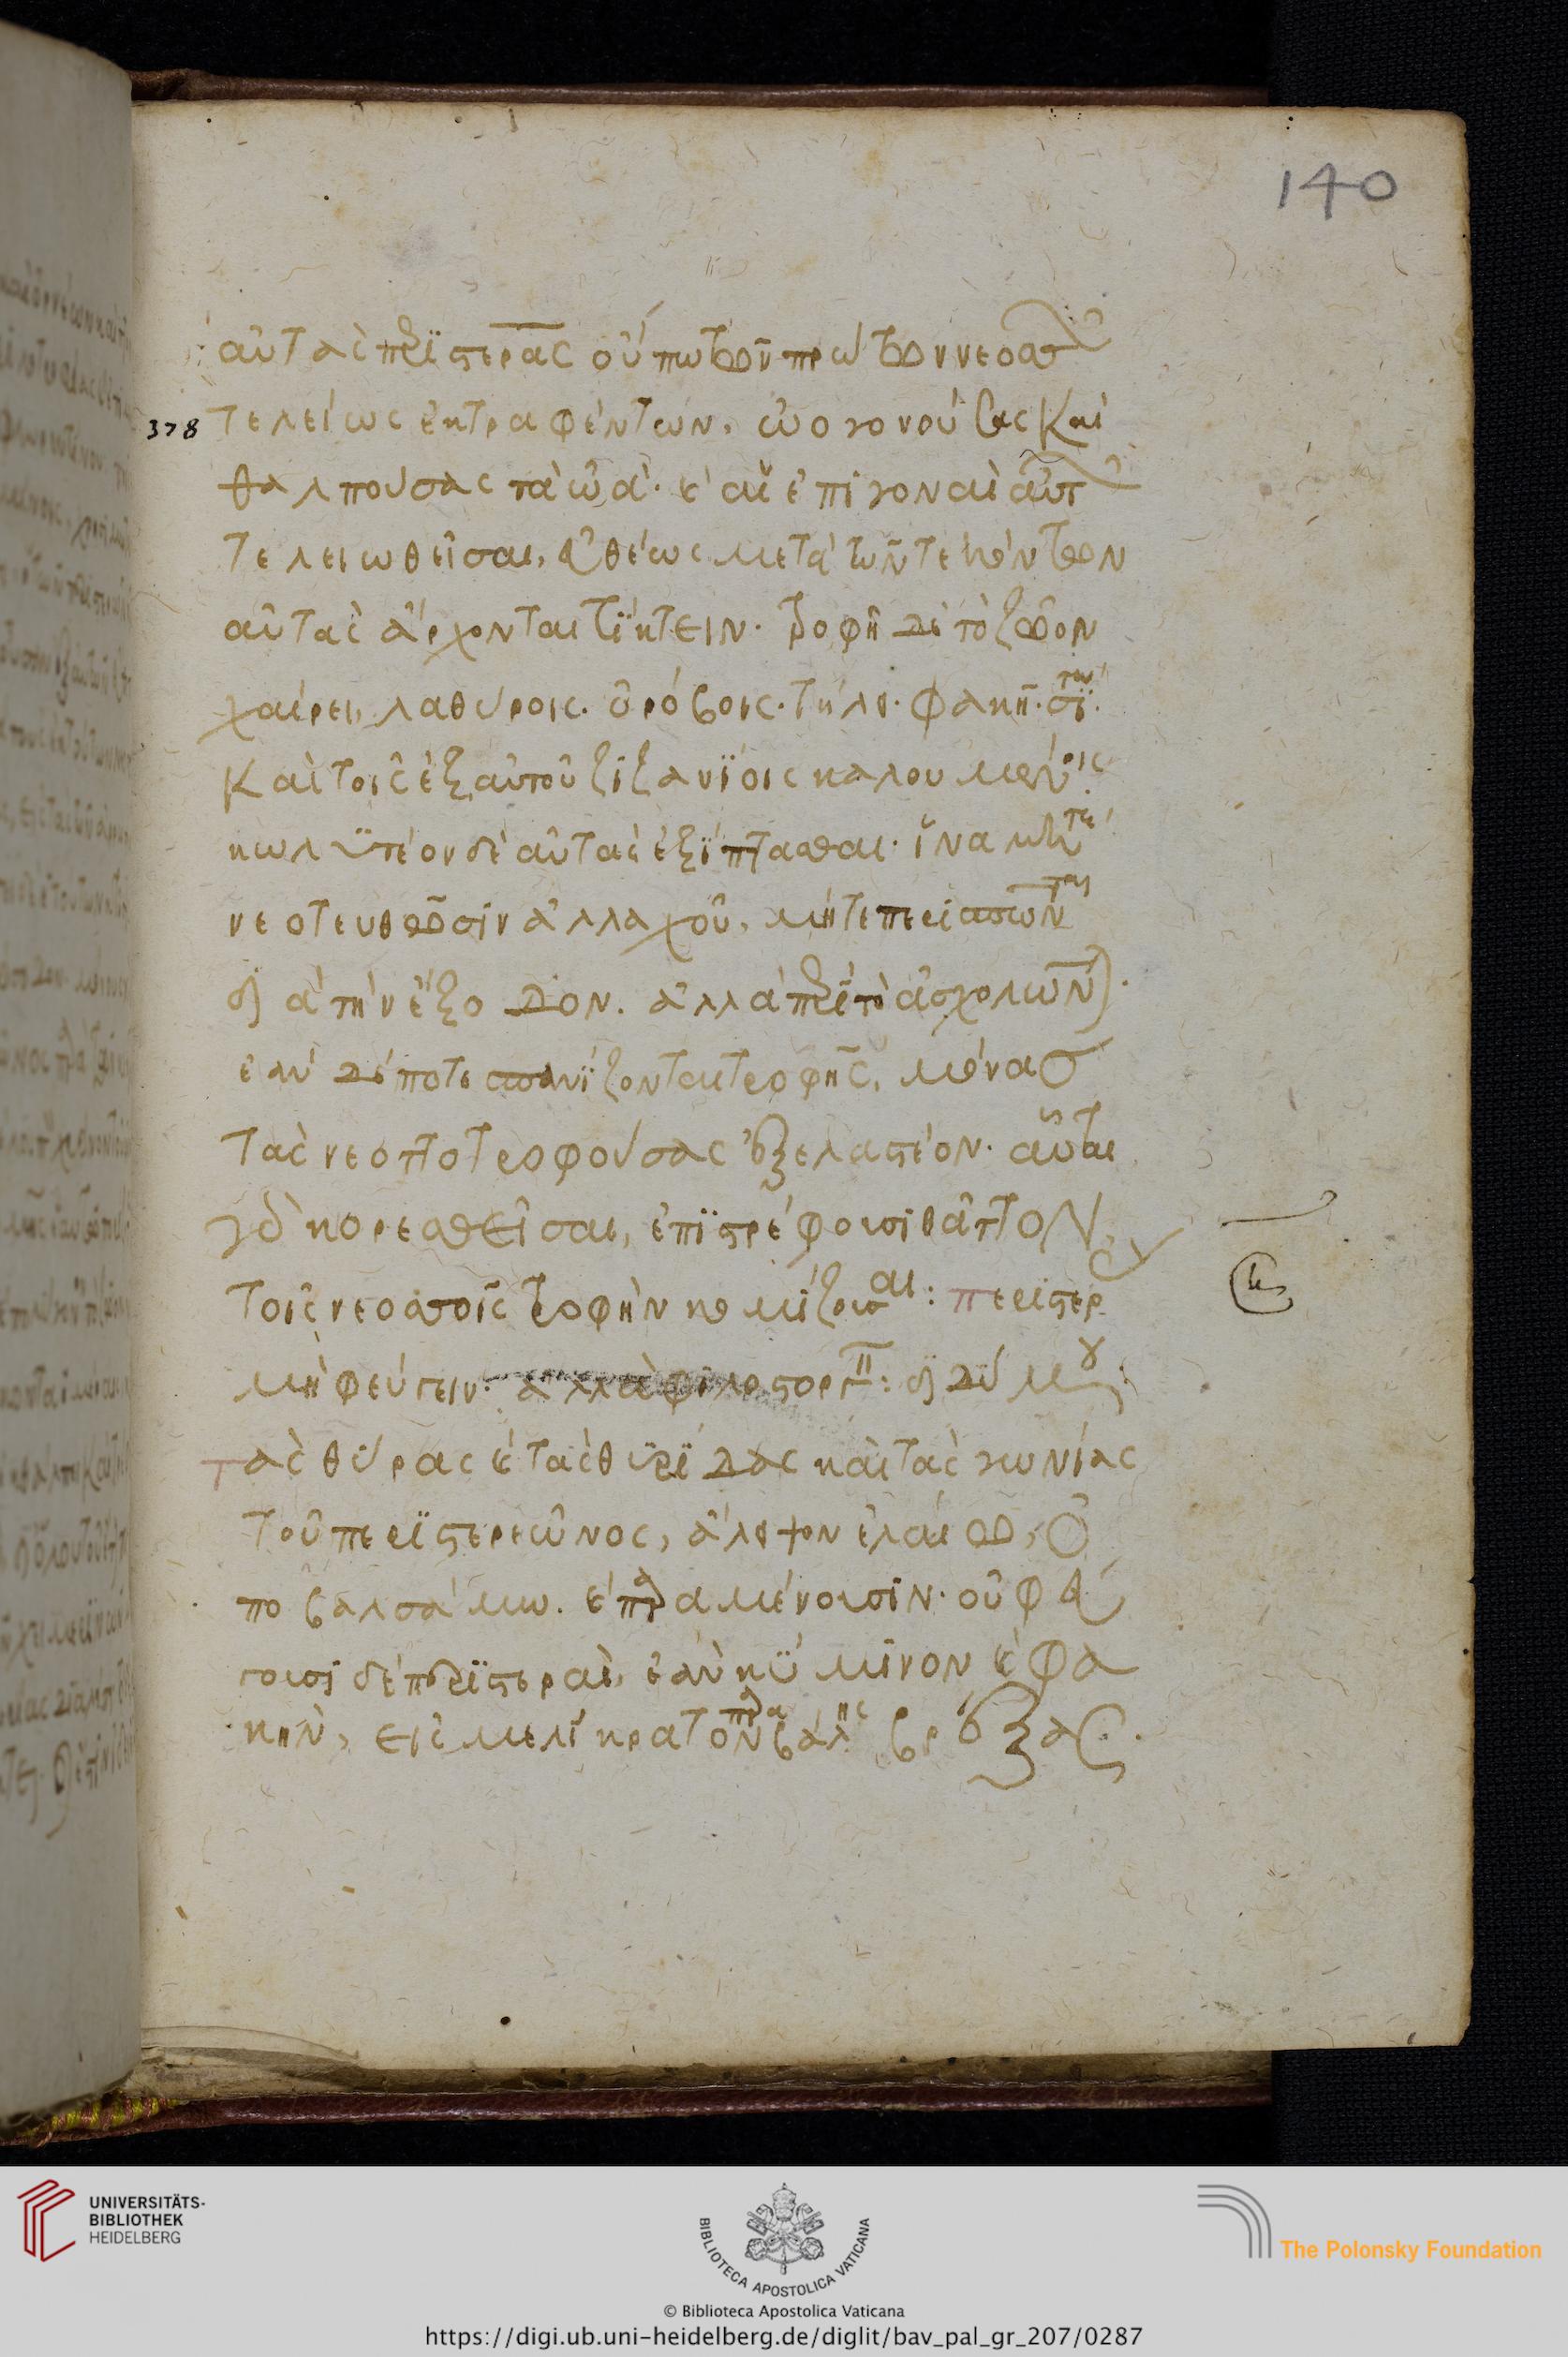 140
αὐτὰς περϊστερὰς οὔπω τῶν πρώτων νεοσσ
378
τελείως ἐκτραφέντων, ὠογονούσας καὶ
θαλπούσας τὰ ὠὰ· κ αἱ ἐπιγοναὶ αὐτ
τελειωθεῖσαι, εὐθέως μετὰ τῶν τεκόντων
αὐτὰς ἄρχονται τίκτειν· τροφῇ δὲ τὸ ζῶον
χαίρει, λαθύροις· ὀρόβοις· τήλει· φακῆ· σί. τω
καὶ τοῖς ἐξ αὐτοῦ ζιζανϊοις καλουμένοις
κωλϋτέον δὲ αὐτὰς ἐξίπτασθαι· ἵνα μήτε
νεοτευθῶσιν ἀλλαχοῦ, μήτε περισπῶνται
διὰ τὴν ἔξοδον. ἀλλὰ περὶ τὸ ἀσχολῶν
ἐὰν δέ ποτε σπανίζονται τροφῆς, μόνας
τὰς νεοττοτροφούσας ἐξελαστέον· αὗται
γὰρ κορεσθεῖσαι, ἐπιστρέφουσι θᾶττον
τοῖς νεοσσοῖς τροφὴν κομίζουσαι: περιστερ
μὴ φεύγειν· ἀλλὰ φιλοστοργ: δημου
τὰς θύρας κ τὰς θυρϊδας καὶ τὰς γωνίας
τοῦ περϊστερεῶνος, ἄλειψον ἐλαίω, ὀ
ποβαλσάμω. κ παραμένουσιν· οὐ φεύ
γουσι δὲ περϊστεραὶ, ἐὰν κύμινον κ φα
κὴν, εἰς μελίκρατον βάλης βρέξας.
UNIVERSITÄTS-
BIBLIOTHEK
HEIDELBERG
BIBLIOTECA APOSTOLICA VATICANA
The Polonsky Foundation
© Biblioteca Apostolica Vaticana
https://digi.ub.uni-heidelberg.de/diglit/bav_pal_gr_207/0287